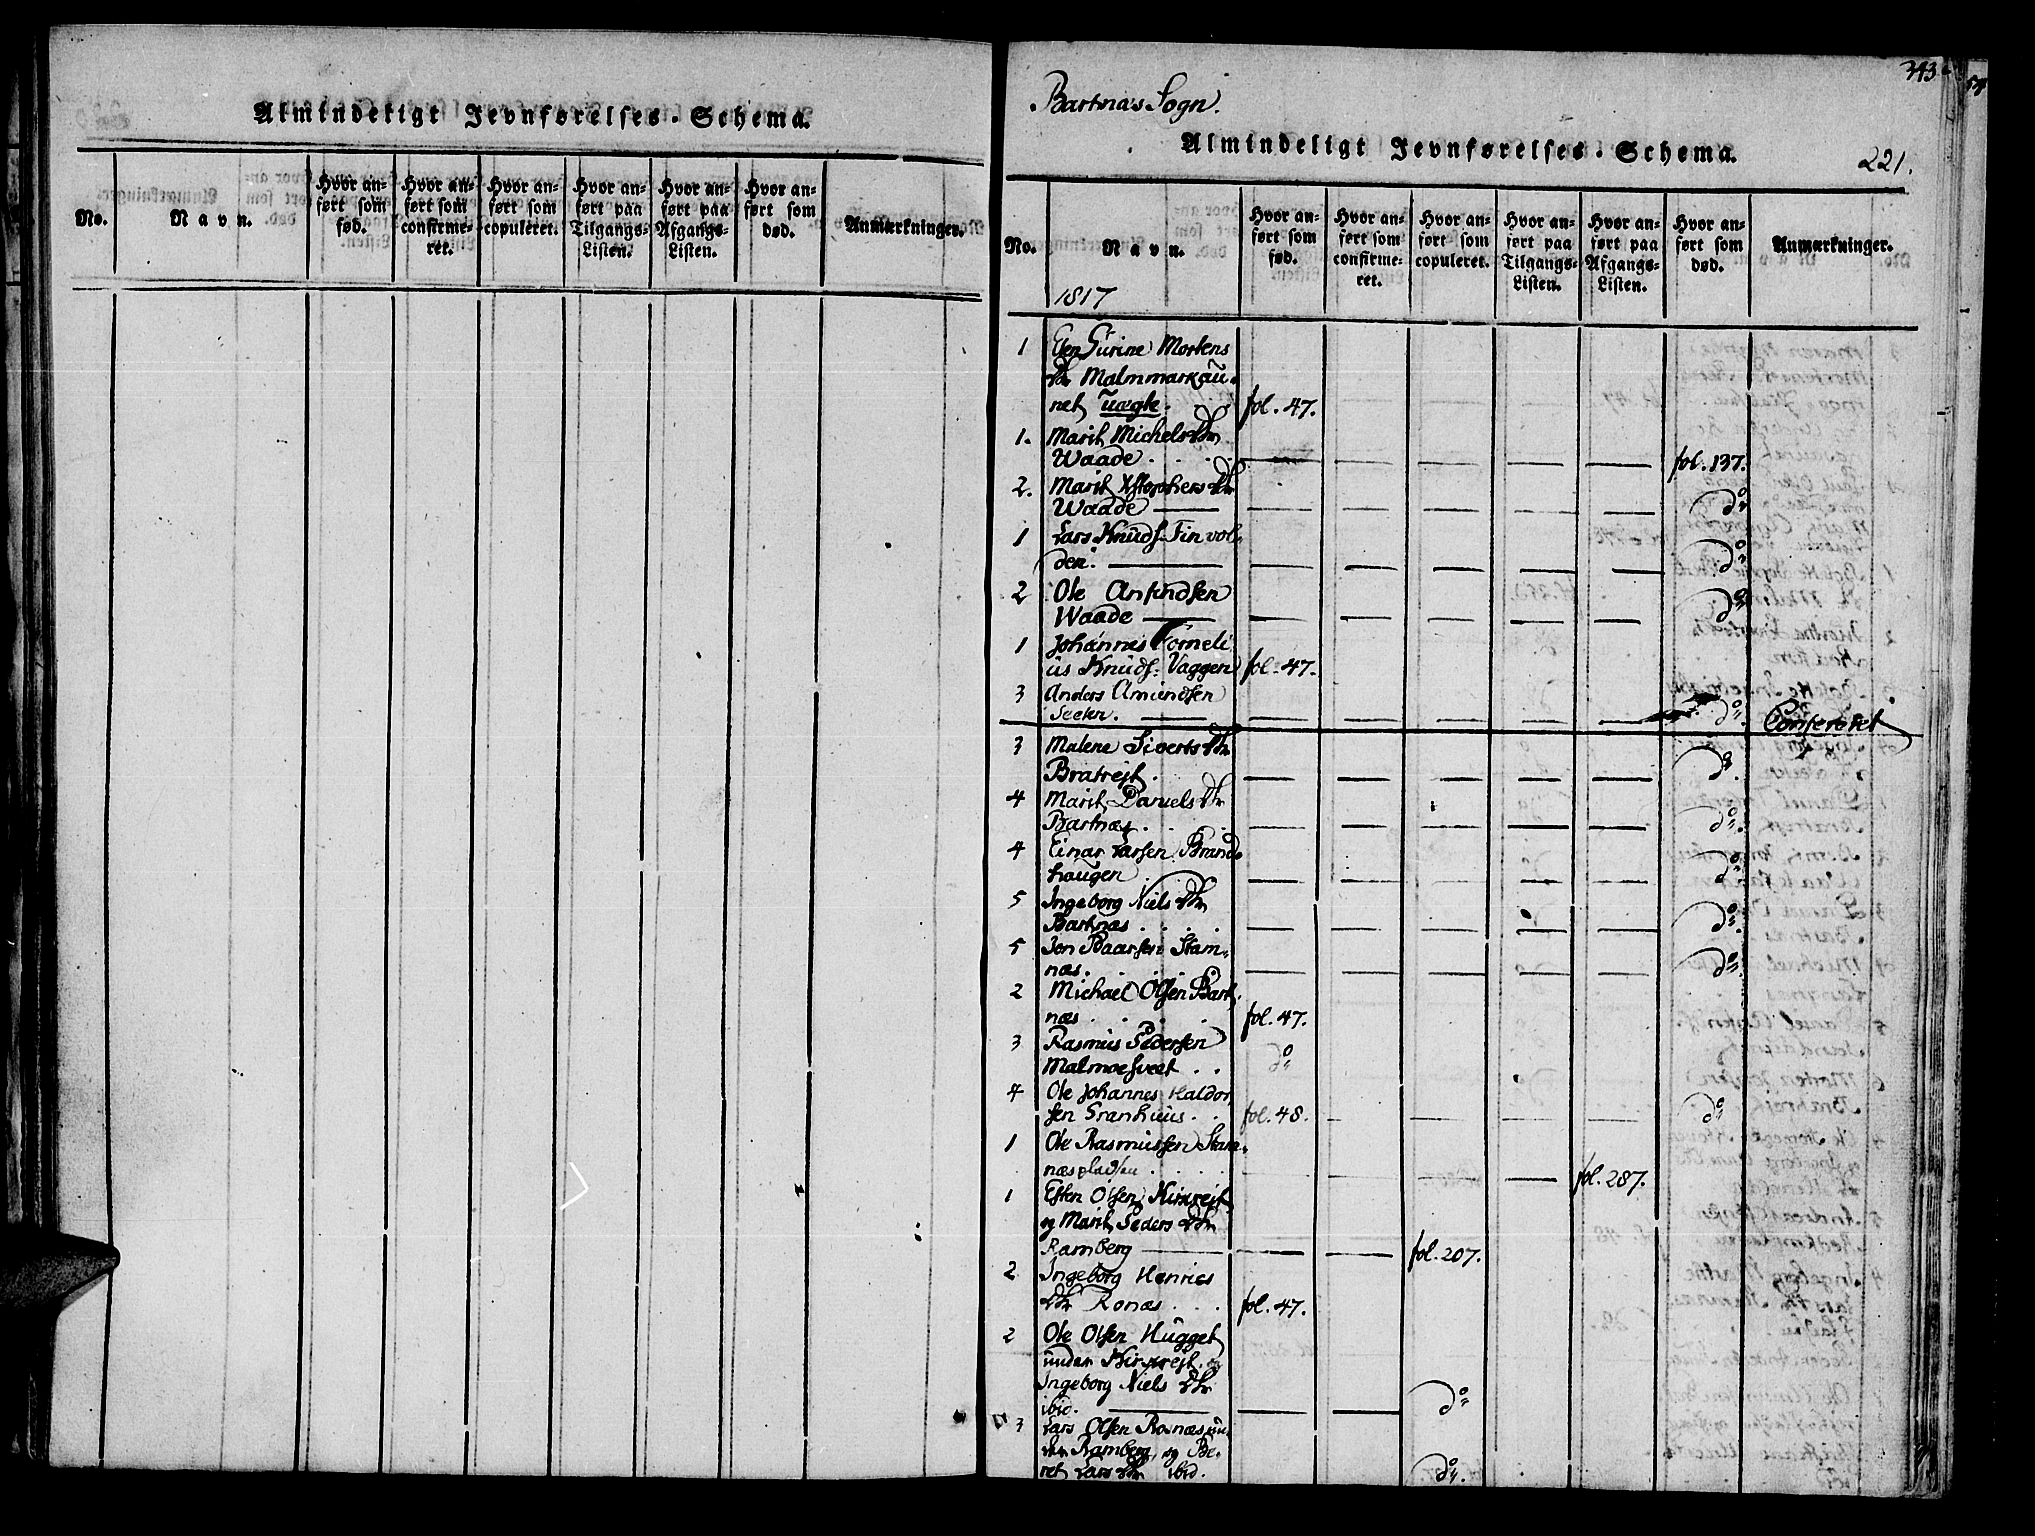 Almindeligt Jevnførelses-Schema.
No.
Navn.
Hvor anført som fød.
Hvor anført som confirmeret.
Hvor anført som copuleret.
Hvor anført paa Tilgangs-Listen.
Hvor anført paa Afgangs-Listen.
Hvor anført som død.
Anmærkninger.
343
Bartnæs Sogn.
Almindeligt Jevnførelses-Schema.
221.
No.
Navn.
Hvor anført som fød.
Hvor anført som confirmeret.
Hvor anført som copuleret.
Hvor anført paa Tilgangs-Listen.
Hvor anført paa Afgangs-Listen.
Hvor anført som død.
Anmærkninger.
1817
1 Elen Surine Mortens
Dtr Malmmarkau-
net uægte. fol. 47.
1. Marit Michels Dtr
Waade . . . fol. 137.
2. Marit Xstophers Dtr
Waade do
1 Lars Knuds. Tinvol-
den. do
2 Ole Amundsen
Waade do
1 Johannes Corneli
us Knuds: Vaggen fol. 47.
3 Anders Amundsen
do Confereret
3 Malene Siverts Dtr
Bratrejt. do
4 Marit Daniels Dtr
Bartnæs. do
4 Einar Larsen Brand-
haugen do
5 Ingeborg Niels Dtr
Bartnæs . . . do
5 Jon Baarsen Stam-
næs. do
2 Michael Olsen Bart-
næs . . . fol. 47.
3 Rasmus Pedersen
Malmoehveet . . do
4 Ole Johannes Haldor
sen Granhuus . . fol. 48. do
1 Ole Rasmussen Stam-
næspladsen . . . fol. 287.
1 Esten Olsen Kirkrejt
og Marit Peders Dtr
Ramberg fol. 207.
2 Ingeborg Henrics
Dtr Ronæs . . . fol. 47.
2 Ole Olsen Hugget
under Kirkrejt og
Ingeborg Niels Dtr
ibid. do
3 Lars Olsen Rosnæs un-
der Ramberg, og Be-
ret Lars Dtr ibid. do